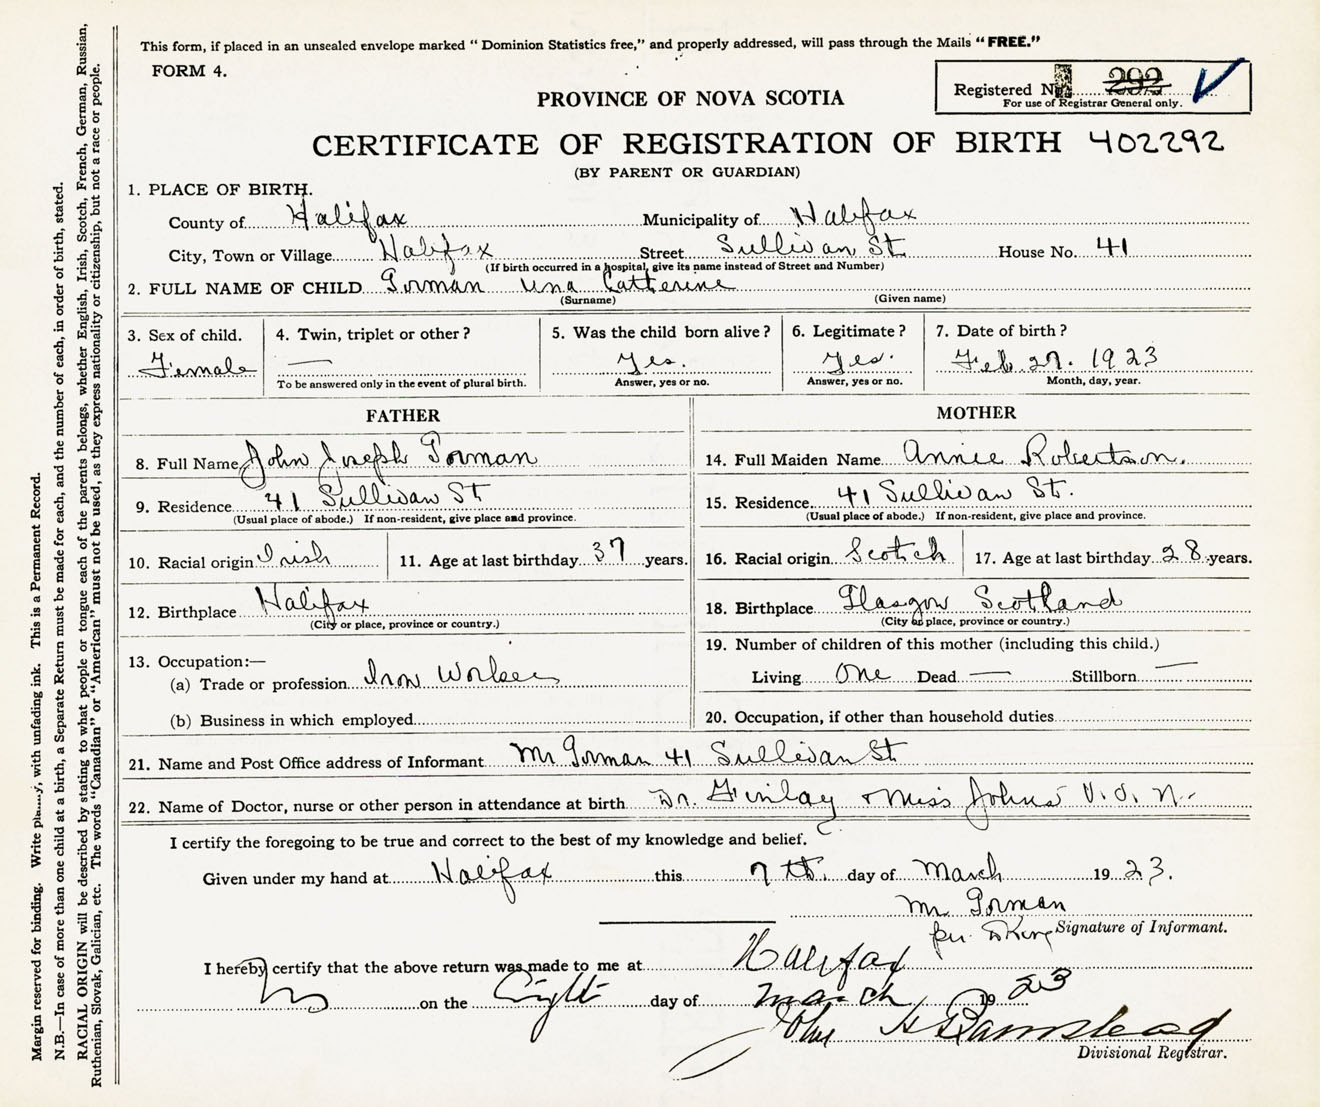 This form, if placed in an unsealed envelope marked "Dominion Statistics free," and properly addressed, will pass through the Mails "FREE."
FORM 4.
Registered No. 292
For use of Registrar General only.
PROVINCE OF NOVA SCOTIA
CERTIFICATE OF REGISTRATION OF BIRTH 402292
(BY PARENT OR GUARDIAN)
1. PLACE OF BIRTH.
County of Halifax Municipality of Halifax
City, Town or Village Halifax Street Sullivan St. House No. 41
(If birth occurred in a hospital, give its name instead of Street and Number)
2. FULL NAME OF CHILD Gorman Una Catherine
(Surname) (Given name)
3. Sex of child. 4. Twin, triplet or other? 5. Was the child born alive? 6. Legitimate? 7. Date of birth?
Female — Yes. Yes. Feb 27. 1923
To be answered only in the event of plural birth. Answer, yes or no. Answer, yes or no. Month, day, year.
FATHER
8. Full Name John Joseph Gorman
9. Residence 41 Sullivan St
(Usual place of abode.) If non-resident, give place and province.
10. Racial origin Irish 11. Age at last birthday 37 years.
12. Birthplace Halifax
(City or place, province or country.)
13. Occupation:—
(a) Trade or profession Iron Worker
(b) Business in which employed
MOTHER
14. Full Maiden Name Annie Robertson.
15. Residence 41 Sullivan St.
(Usual place of abode.) If non-resident, give place and province.
16. Racial origin Scotch 17. Age at last birthday 28 years.
18. Birthplace Glasgow Scotland
(City or place, province or country.)
19. Number of children of this mother (including this child.)
Living One Dead — Stillborn —
20. Occupation, if other than household duties
21. Name and Post Office address of Informant Mr Gorman 41 Sullivan St
22. Name of Doctor, nurse or other person in attendance at birth Dr. Finlay + Miss Johns V. O. N.
I certify the foregoing to be true and correct to the best of my knowledge and belief.
Given under my hand at Halifax this 7th. day of March 1923.
Mr Gorman
per King Signature of Informant.
I hereby certify that the above return was made to me at Halifax
NS on the Eight day of March 1923
John H Barnstead
Divisional Registrar.
Margin reserved for binding. Write plainly, with unfading ink. This is a Permanent Record.
N.B.—In case of more than one child at a birth, a Separate Return must be made for each, and the number of each, in order of birth, stated.
RACIAL ORIGIN will be described by stating to what people or tongue each of the parents belongs, whether English, Irish, Scotch, French, German, Russian,
Ruthenian, Slovak, Galician, etc. The words "Canadian" or "American" must not be used, as they express nationality or citizenship, but not a race or people.